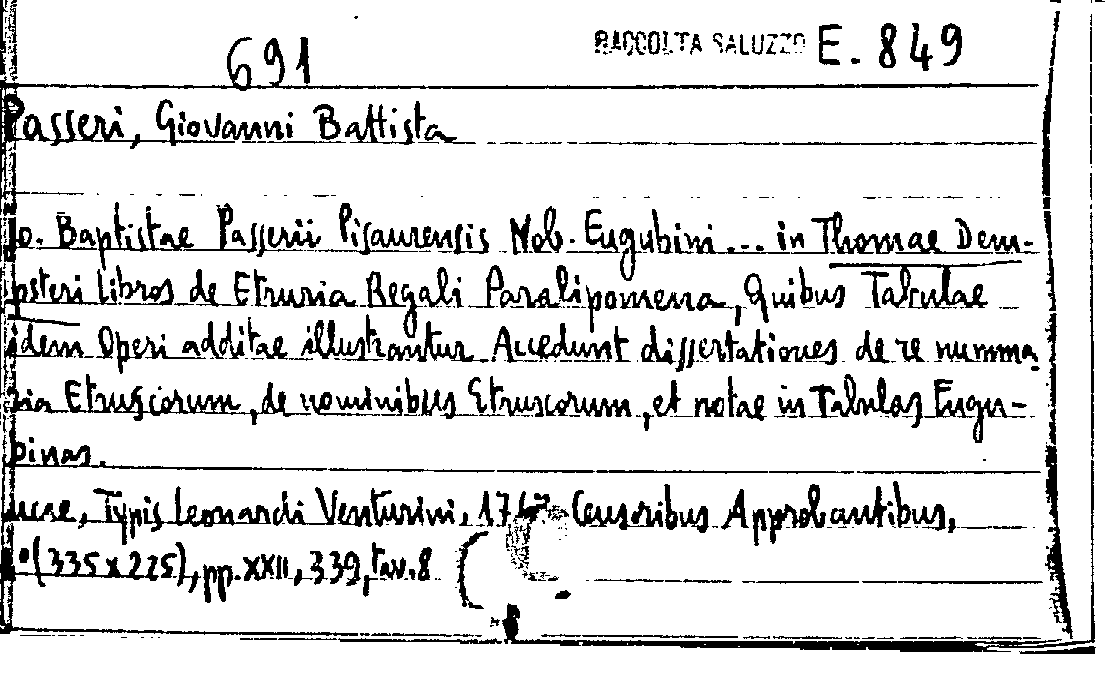 691 RACCOLTA SALUZZO E. 849
Passeri, Giovanni Battista
Jo. Baptistae Passerii Pisaurensis Nob. Eugubini... in Thomae Dem-
psteri libros de Etruria Regali Paralipomena, quibus Tabulae
idem Operi additae illustrantur Accedunt dissertationes de re numma
ria Etruscorum, de nominibus Etruscorum, et notae in Tabulas Eugu-
binas.
ucae, Typis Leonardi Venturini, Censoribus Approbantibus,
°(335x225), pp. XXII, 339, tav. 8